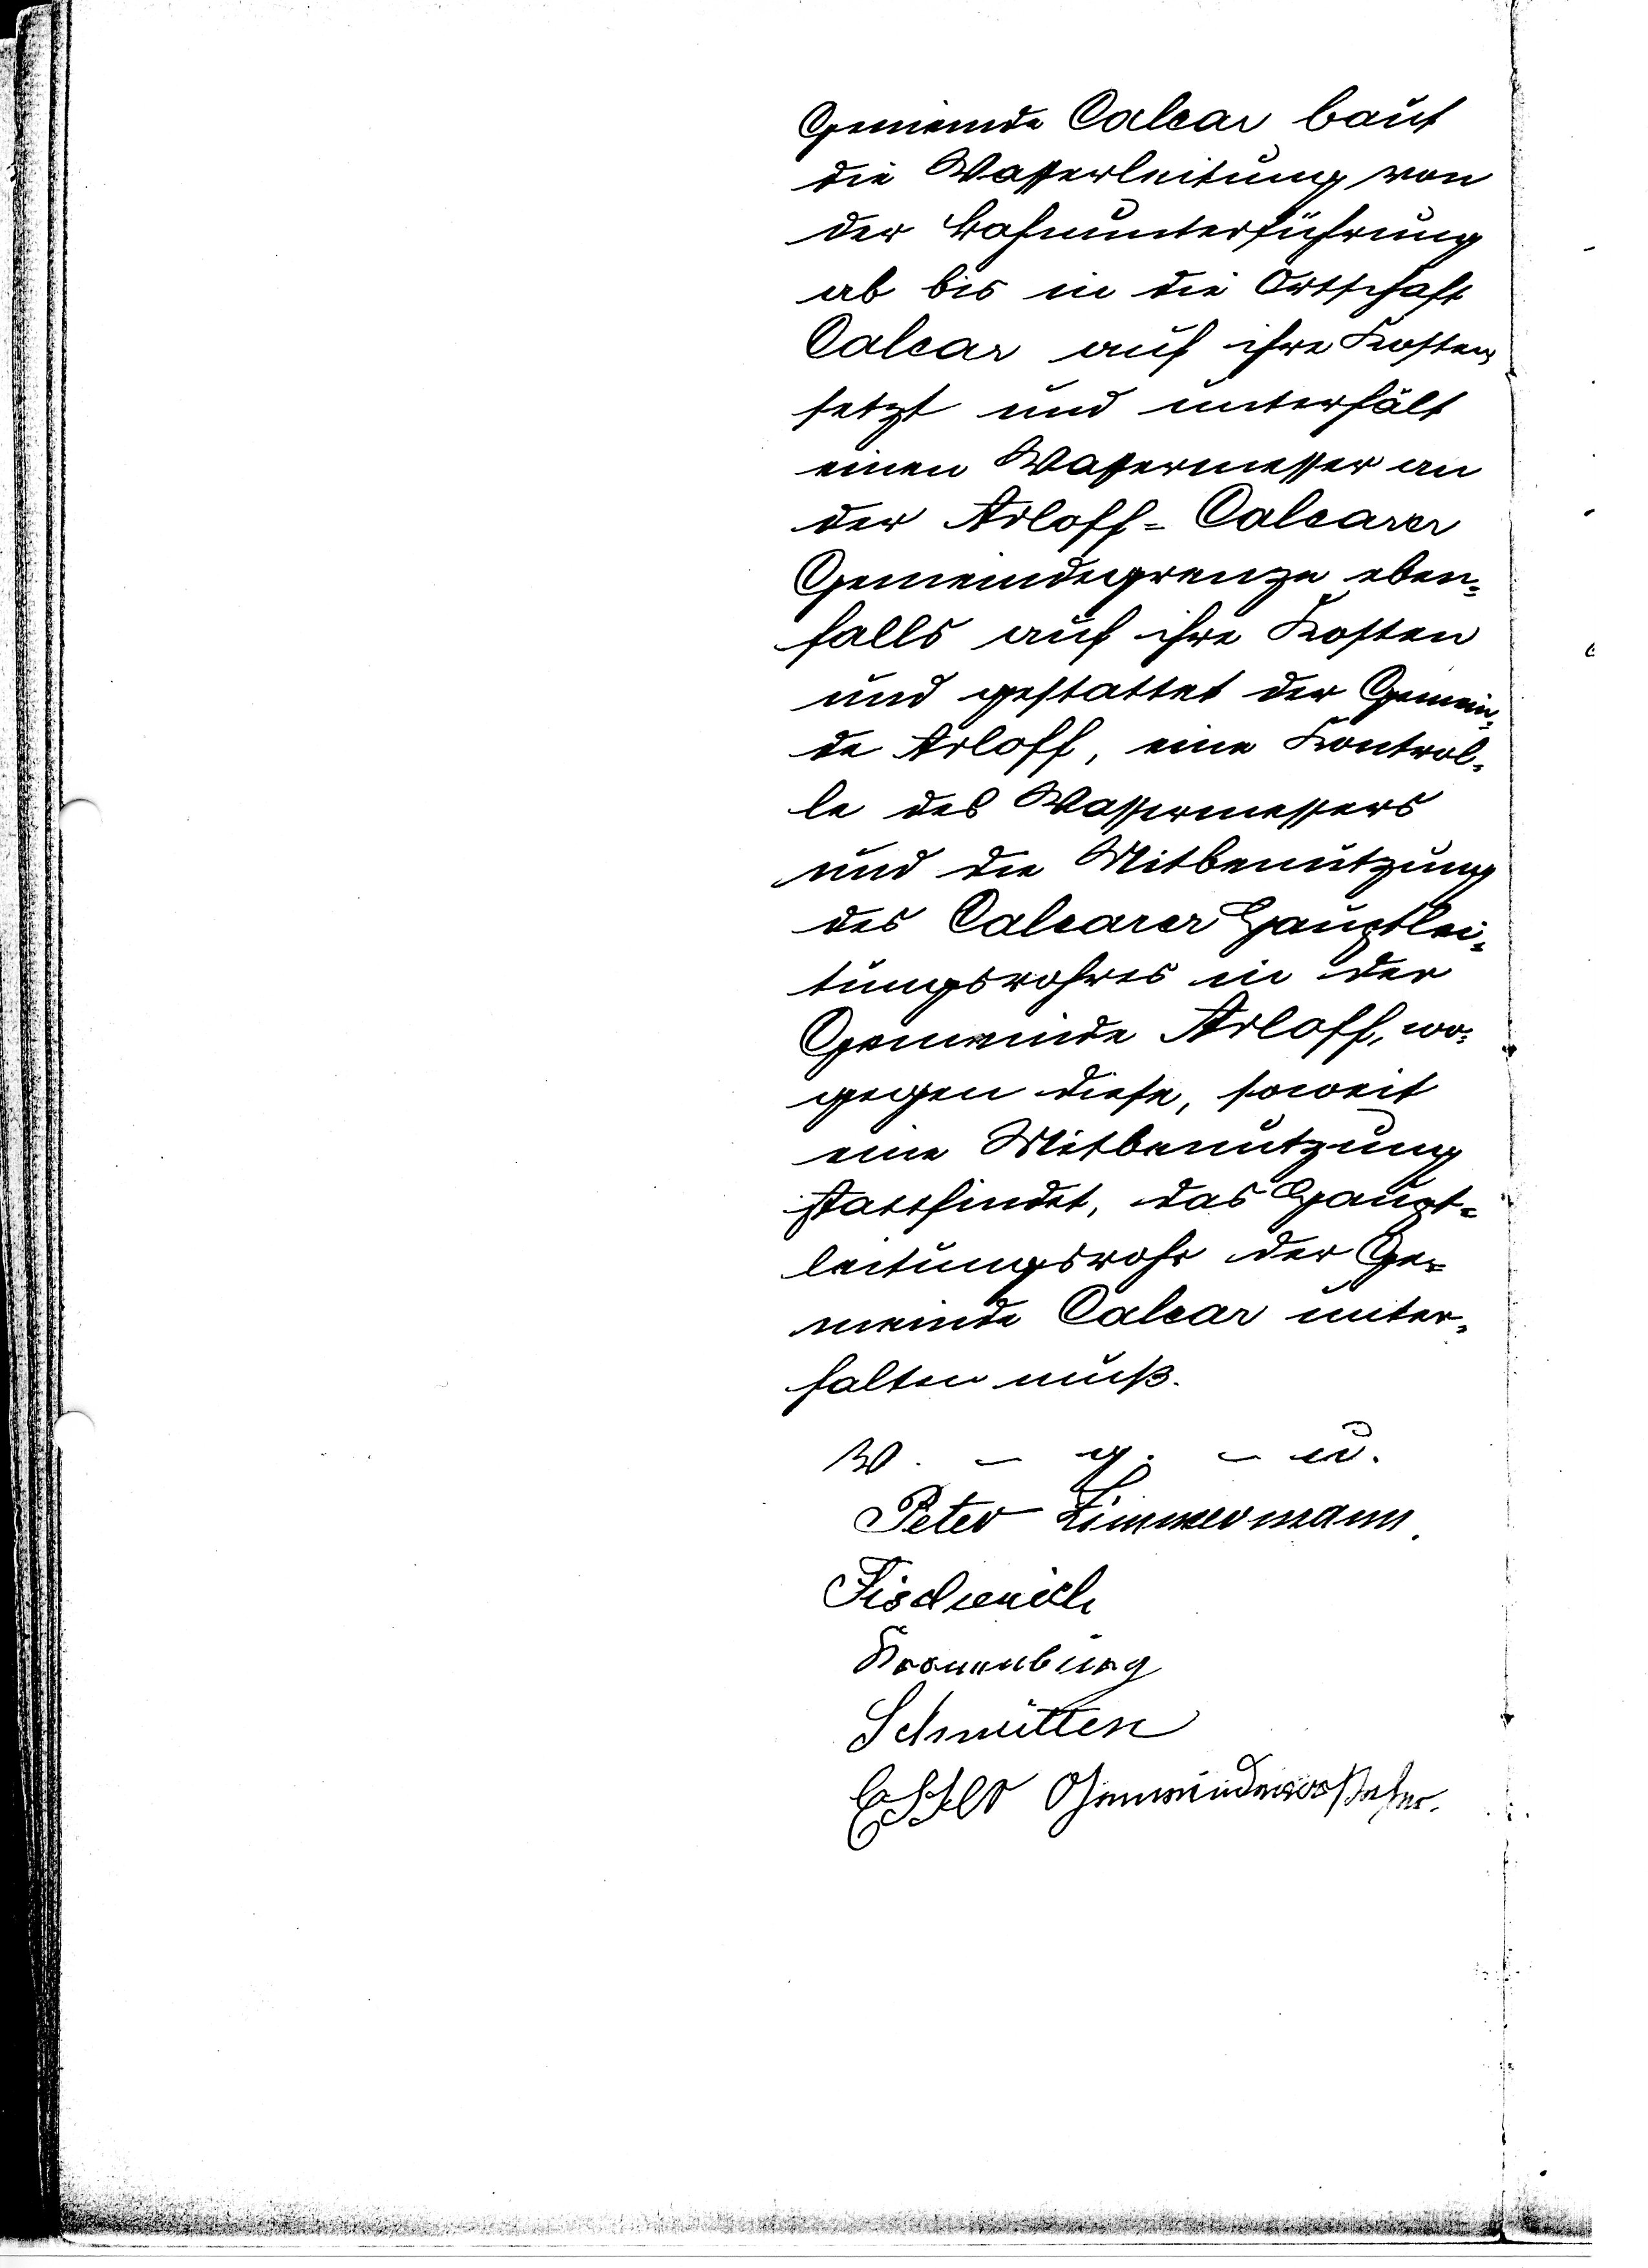 Gemeinde Calcar baut
die Wasserleitung von
der Bahnunterführung
ab bis in die Ortschaft
Calcar auf ihre Kosten,
setzt und unterhält
einen Wassermesser an
der Arloff-Calcarer
Gemeindegrenze eben-
falls auf ihre Kosten
und gestattet der Gemein-
de Arloff, eine Kontrol-
le des Wassermessers
und die Mitbenutzung
des Calcarer Hauptlei-
tungsrohres in der
Gemeinde Arloff, wo-
gegen diese, soweit
eine Mitbenutzung
stattfindet, das Haupt-
leitungsrohr der Ge-
meinde Calcar unter-
halten muß.
v. - g. - u.
Peter Zimmermann.
Fischenich
Kronenburg
Schmitten
Esser Gemeindevorsteher.